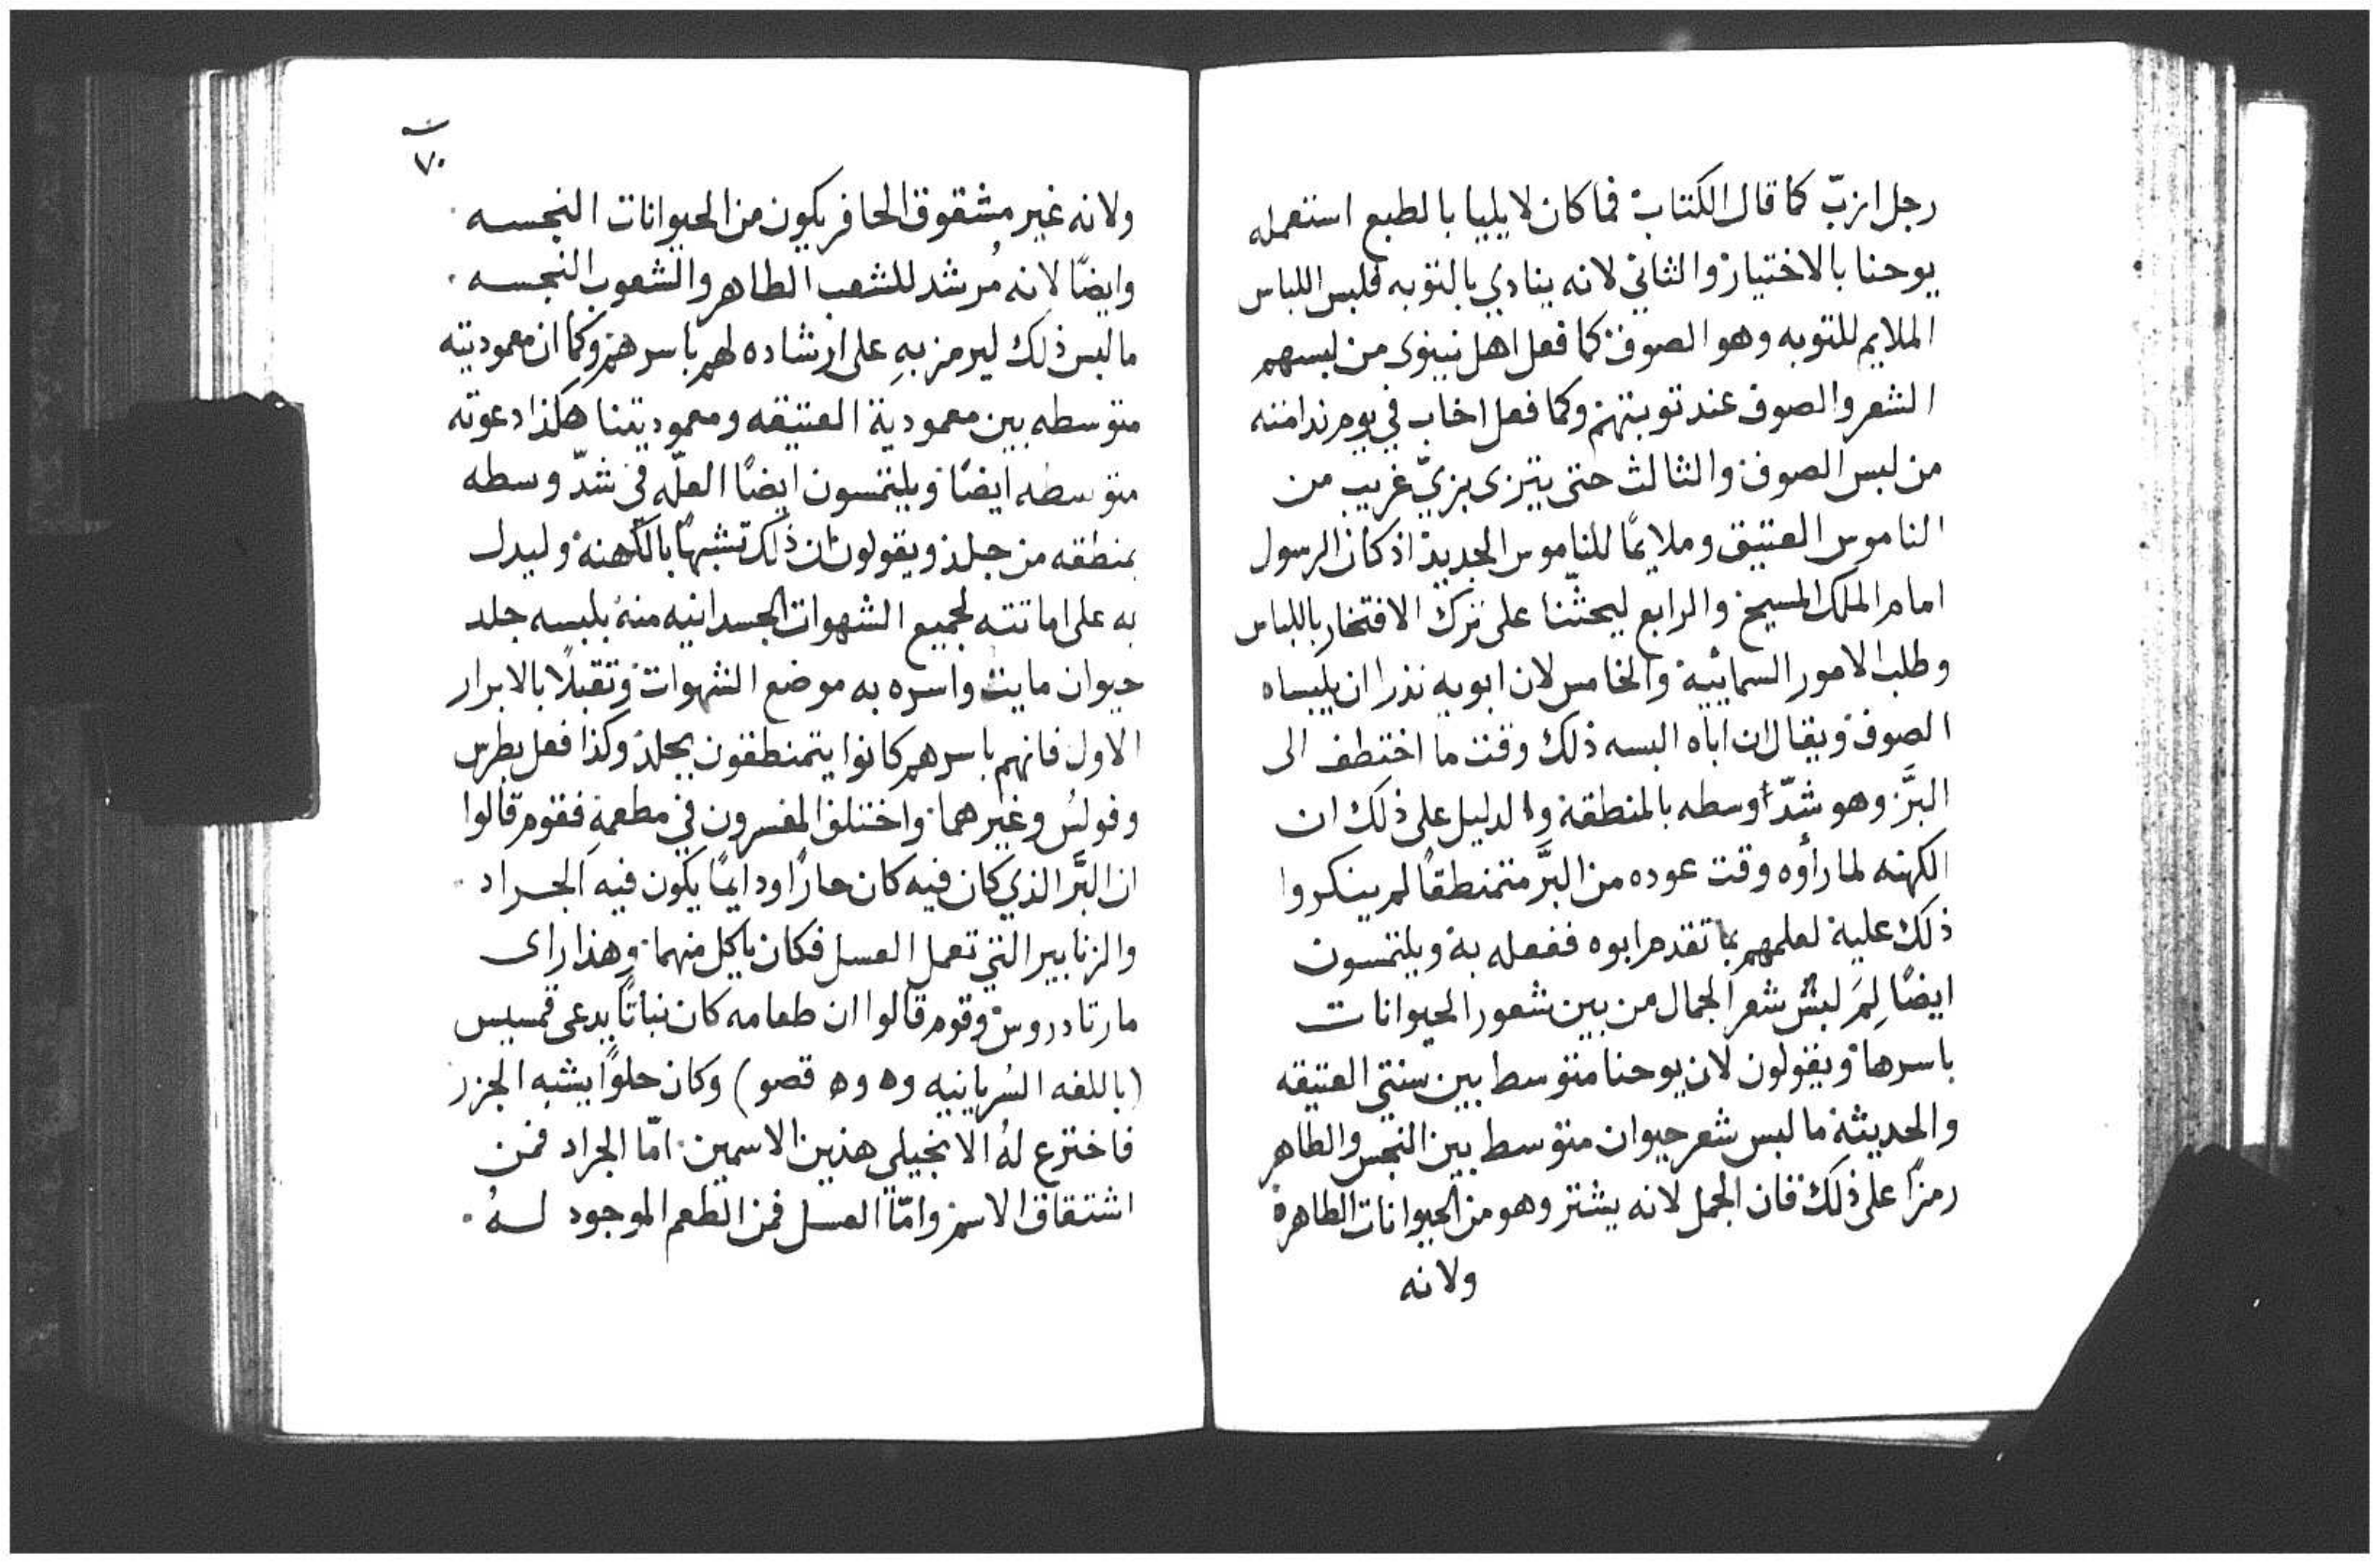 رجل ازبّ كما قال الكتاب فما كان لايليا بالطبع استعمله
يوحنا بالاختيار والثاني لانه ينادي بالتوبه فلبس اللباس
الملايم للتوبه وهو الصوف كما فعل اهل نينوى من لبسهم
الشعر والصوف عند توبتهم وكما فعل اخاب في يوم ندامته
من لبس الصوف والثالث حتى يتزى بزيّ غريب من
الناموس العتيق وملايمًا للناموس الجديد اذ كان الرسول
امام الملك المسيح والرابع ليحثّنا على ترك الافتخار باللباس
وطلب الامور السمائية والخامس لان ابويه نذرا ان يلبساه
الصوف ويقال ان اباه البسه ذلك وقت ما اختطف الى
البَّر وهو شدّ اوسطه بالمنطقة والدليل على ذلك ان
الكهنه لما رأوه وقت عوده من البَّر متمنطقًا لم ينكروا
ذلك عليه لعلمهم بما تقدم ابوه ففعله به ويلتمسون
ايضًا لِمَ لبس شعر الجمال من بين شعور الحيوانات
باسرها ويقولون لان يوحنا متوسط بين سنتي العتيقه
والحديثة ما لبس شعر حيوان متوسط بين النجس والطاهر
رمزًا على ذلك فان الجمل لانه يشتر وهو من الحيوانات الطاهرة
ولانه
٧٠
ولانه غير مشقوق الحافر يكون من الحيوانات النجسه
وايضًا لانه مُرشد للشعب الطاهر والشعوب النجسه
ما لبس ذلك ليرمز بهِ على ارشاده لهم باسرهم وكما ان معموديته
متوسطه بين معمودية العتيقه ومعموديتنا هكذا دعوته
متوسطه ايضًا ويلتمسون ايضًا العلّه في شدّ وسطه
بمنطقه من جلد ويقولون ان ذلك تشبهًا بالكهنة وليدل
به على اماتته لجميع الشهوات الجسدانيه منهُ بلبسه جلد
حيوان مايت واسره به موضع الشهوات وتقبلًا بالابرار
الاول فانهم باسرهم كانوا يتمنطقون بجلد وكذا فعل بطرس
وفولُس وغيرهما واختلف المفسرون في مطعمهِ فقوم قالوا
ان البَّر الذي كان فيه كان حارًا ودايمًا يكون فيه الجراد
والزنابير التي تعمل العسل فكان ياكل منهما وهذا راى
مار تادروس وقوم قالوا ان طعامه كان نباتًا يدعى قمسيس
(باللغه السُريانيه وه وه قصو) وكان حلوًا يشبه الجزر
فاخترع لهُ الانجيلي هذين الاسمين امّا الجراد فمن
اشتقاق الاسم وامّا العسل فمن الطعم الموجود لهُ